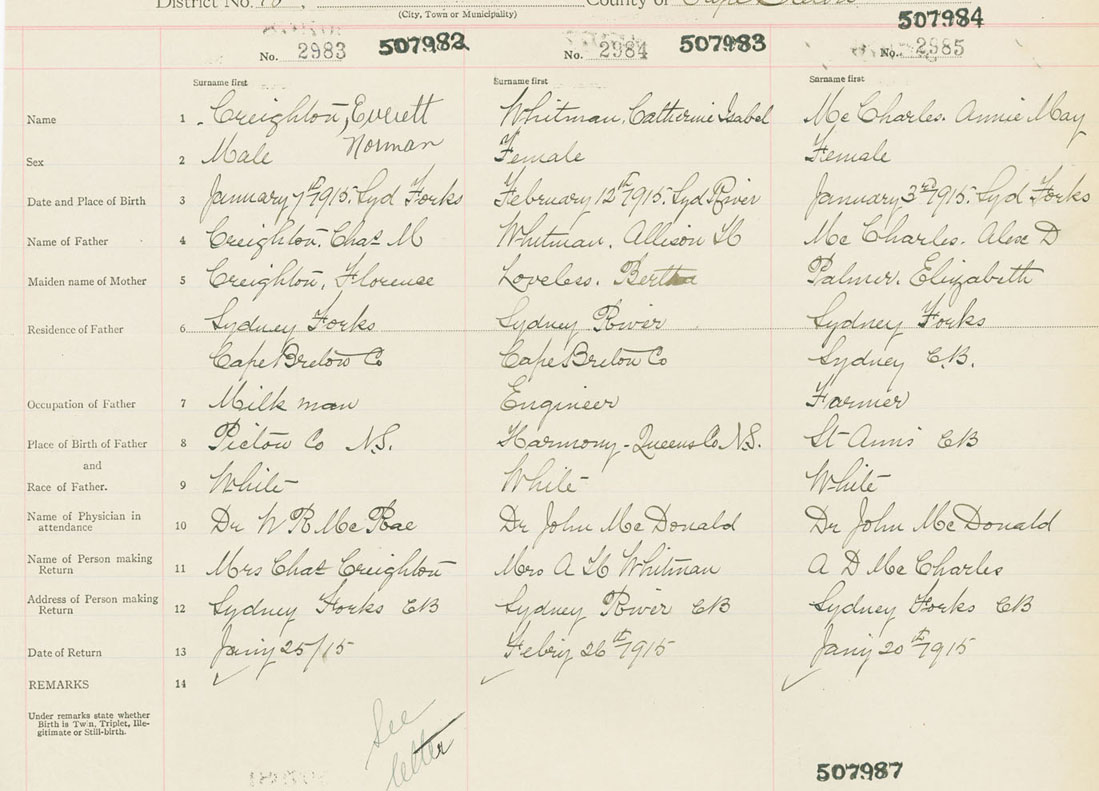 District No. County of Cape Breton
(City, Town or Municipality)
No. 2983 507982 No. 2984 507983 No. 2985 507984
Surname first Surname first Surname first
Name 1 Creighton, Everett Norman Whitman, Catherine Isabel Mc Charles. Annie May
Sex 2 Male Female Female
Date and Place of Birth 3 January 7th 1915. Syd Forks February 12th 1915. Syd River January 3rd 1915. Syd Forks
Name of Father 4 Creighton. Chas M Whitman. Allison H Mc Charles. Alex D
Maiden name of Mother 5 Creighton, Florence Loveless. Bertha Palmer. Elizabeth
Residence of Father 6 Sydney Forks Sydney River Sydney Forks
Cape Breton Co Cape Breton Co Sydney C.B.
Occupation of Father 7 Milk man Engineer Farmer
Place of Birth of Father 8 Pictou Co N.S. Harmony - Queens Co N.S. St Anns CB
and
Race of Father. 9 White White White
Name of Physician in attendance 10 Dr W R Mc Rae Dr John Mc Donald Dr John Mc Donald
Name of Person making Return 11 Mrs Chas Creighton Mrs A H Whitman A D Mc Charles
Address of Person making Return 12 Sydney Forks CB Sydney River CB Sydney Forks CB
Date of Return 13 Jany 25/15 Febry 26th 1915 Jany 20th 1915
REMARKS 14
Under remarks state whether
Birth is Twin, Triplet, Ille-
gitimate or Still-birth.
See
letter
507987